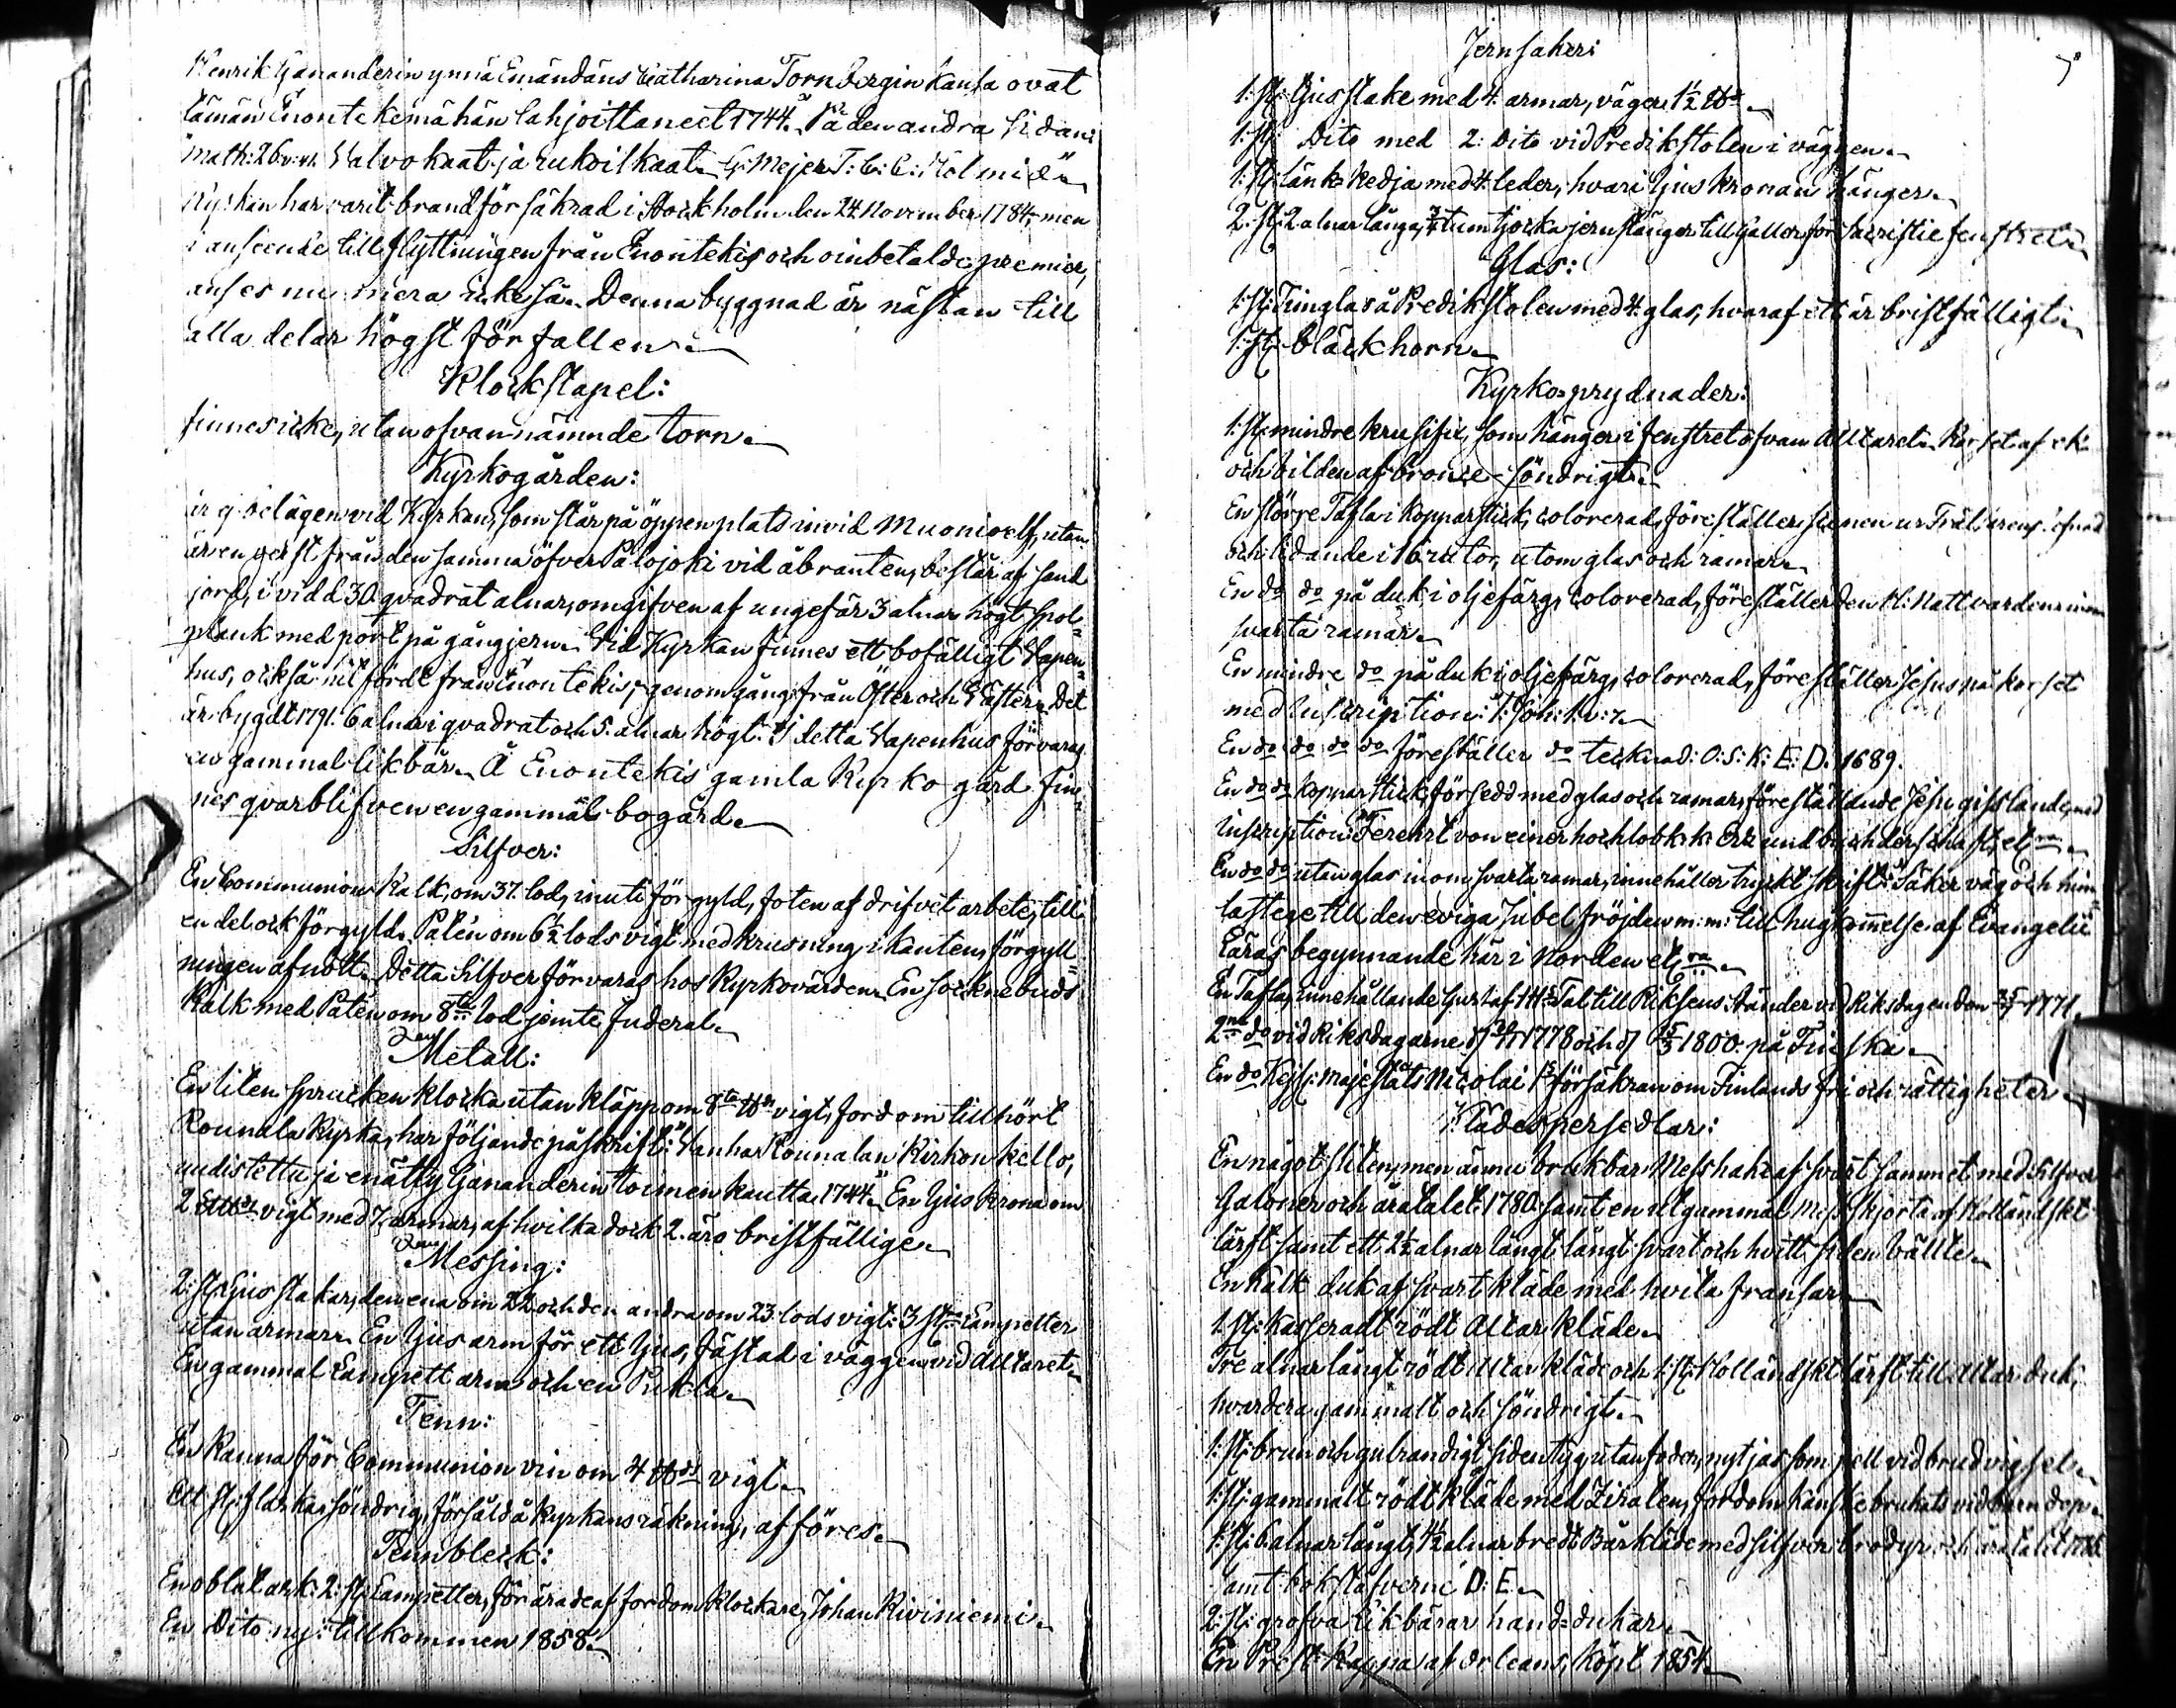 Henrik Gananderin ynnä Emändäns Catharina Tornbergin kansa ovat
tämän Enontekemähän lahjoittaneet 1744." På den andra sidan:
"Math: 26. v: 41. Walvokaat ja rukoilkaat. G: Mejer T: C: C: Holmiæ"
Kyrkan har varit brandförsäkrad i Stockholm den 24. November 1784, men
i anseende till flyttningen från Enontekis och oinbetalde premier,
anses nu mera icke så. Denna byggnad är nästan till
alla delar högst förfallen.
Klockstapel:
finnes icke, utan ofvannämnde torn.
Kyrkogården:
är ej belägen vid Kyrkan, som står på öppen plats invid Muonioelf, utan
är en gerst från densamma öfver Palojoki vid åbranten, består af sand
jord, i vidd 30. qvadrat alnar, omgifven af ungefär 3 alnar högt spol=
plank med port på gångjern. Vid Kyrkan finnes ett bofälligt Vapen=
hus, också hitfördt från Enontekis, genomgång från Öster och Väster. Det
är bygdt 1791. 6 alnar i qvadrat och 5. alnar högt. I detta Vapenhus förvaras
en gammal likbår. Å Enontekis gamla Kyrkogård fin=
nes qvarblifven en gammal bogård.
Silfver:
En Communion Kalk, om 37. lod, inuti förgyld, foten af drifvet arbete, till
en del ock förgyld. Paten om 6½ lods vigt med krusning i kanten, förgyll
ningen afnött. Detta Silfver förvaras hos Kyrkovärden. En sockenbuds
Kalk med Paten om 8ta lod jemte fuderal.
Metall:
En liten sprucken klocka utan kläpp om 8ta ℔ds vigt, fordom tillhört
Rounala Kyrka, har följande påskrift: "Vanhan Rounalan Kirkon kello,
uudistettu ja enätty Gananderin toimen kautta 1744." En Ljuskrona om
2 L℔ds vigt med 7. armar, af hvilka dock 2. äro bristfällige.
Messing:
2: st: Ljusstakar, den ena om 22 och den andra om 23. lods vigt: 3 st: Lampetter
utan armar. En Ljusarm för ett Ljus, fästad i väggen vid Altaret.
En gammal Lampett arm och en Pukla.
Tenn:
En Kanna för Communion vin om 4 ℔ds vigt.
Ett st: flaska söndrig, försåld å kyrkans räkning, afföres.
Tennbleck:
En oblat ask: 2: st: Lampetter, förärade af fordom klockare, Johan Kiviniemi.
En Dito ny: tillkommen 1858.
Jernsaker:
7
1: st: Ljusstake med 4: armar, väger 1½ ℔d.
1: st: Dito med 2: Dito vid Predikstolen i väggen.
1: st: länk=kedja med 4: leder, hvari Ljuskronan hänger.
2: st: 2 alnar långa, ¾ tum tjocka jernstänger till Galler för Sacristie fenstret.
Glas:
1: st: Timglas å Predikstolen med 4: glas, hvaraf ett är bristfälligt.
1: st: bläckhorn.
Kyrko=prydnader:
1: st: mindre krusifix, som hänger i fenstret ofvan Altaret. Korset af ek
och bilden af bronce söndrigt.
En större Tafla i Kopparstick, colorerad, föreställer scenen ur Frälsarens lefnad
och lidande i 16 rutor, utom glas och ramar.
En do do på duk i oljefärg, colorerad, föreställer den H: Nattvarden inom
svarta ramar.
En mindre do på duk i oljefärg, colorerad, föreställer Jesus på korset
med Inscription: 1: Joh: 1. v: 7.
En do do do do föreställer do tecknad: O: S: K: E: D: 1689.
En do do kopparstick, försedd med glas och ramar, föreställande Jesu gisslande, med
Inscription: Verehrt von einer hochlobl: k: Erz und
En do do utan glas inom svarta ramar, innehåller tryckt skrift: "Säker väg och him=
lastege till den eviga Jubel fröjden m: m: till hugkommelse af Evangelii
läras begynnande här i Norden etc.
En Tafla, innehållande Gustaf III:s Tal till Riksens Ständer vid Riksdagen den 25/6 1771.
2ne do vid Riksdagarne d 30/11 1778 och d 15/3 1800. på Finska.
En do Kejs: Majestäts Nicolai I:s försäkran om Finlands fri och rättigheter.
Klädespersedlar:
En något sliten, men ännu brukbar Messhake af svart sammet med Silfver
Galoner och åratalet 1780. samt en utgammal Messskjorta af Holländskt
lärft samt ett 2½ alnar långt långt svart och hvitt siden bälte.
En Kalk duk af svart kläde med hvita fransar.
1. st: kasseradt rödt Altarkläde.
Tre alnar långt rödt Altarkläde och 1: st: Holländskt lärft till Altarduk,
hvardera gammalt och söndrigt.
1: st: brun och gulrandigt sidentyg utan foder, nytjas som pell vid brudvigsel.
1: st: gammalt rödt Kläde med Ziraten, fordom kanske brukats vid barn dop.
1: st: 6 alnar långt, 4½ alnar bredt Bårkläde med silfver brodyr och åratalet
samt bokstäfverne D: E.
2: st: grofva Likbårar hand=dukar.
En Prest=Kappa af Orleans, köpt 1854.